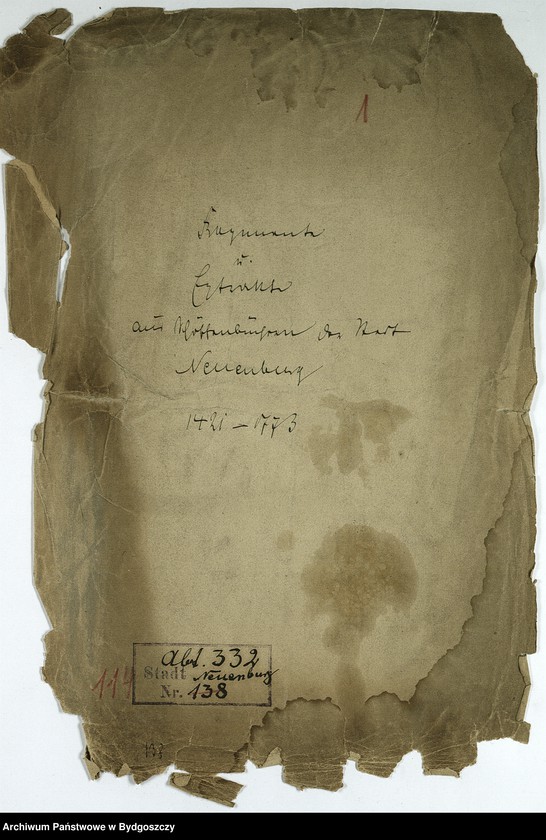 1
Fragmente
u.
Extrakte
aus Schöffenbüchern der Stadt
Neuenburg
1421 – 1773
Abt. 332
Stadt Neuenburg
Nr. 138
114
138
Archiwum Państwowe w Bydgoszczy